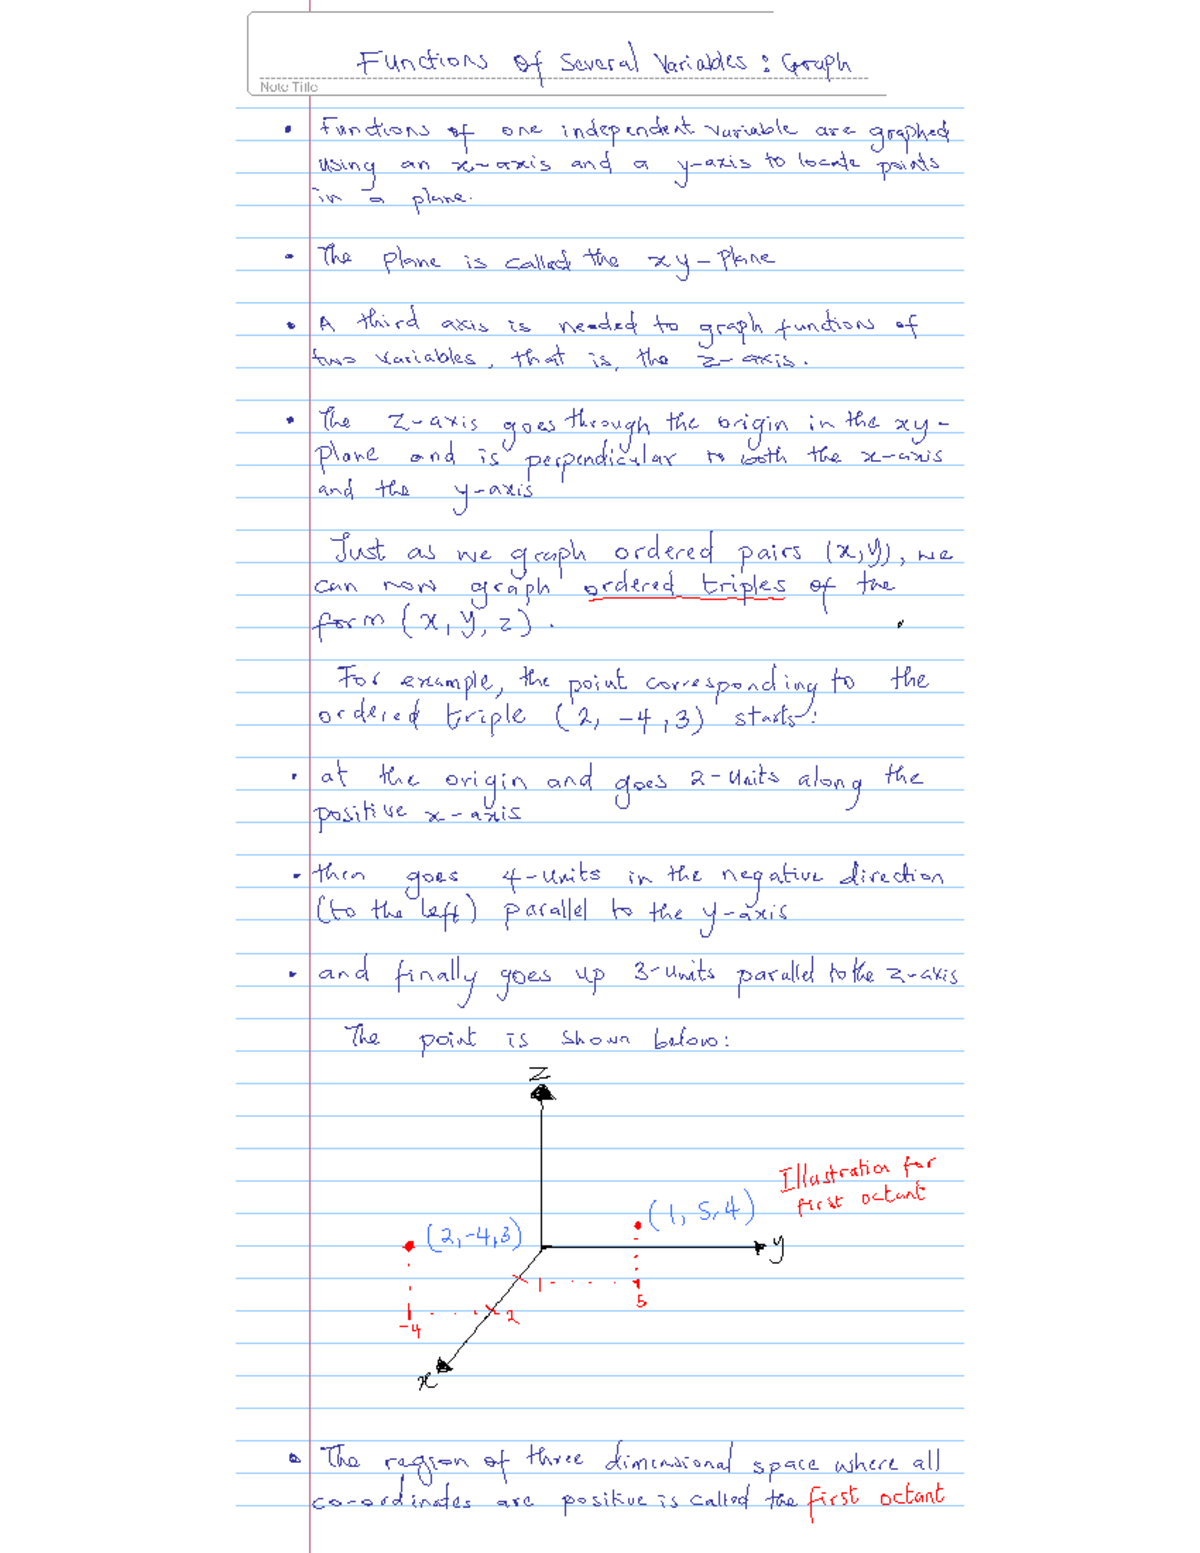 Functions of Several Variables : Graph
Note Title
• Functions of one independent variable are graphed
using an x-axis and a y-axis to locate points
in a plane.
• The plane is called the xy-Plane
• A third axis is needed to graph functions of
two variables, that is, the z-axis.
• The z-axis goes through the origin in the xy-
plane and is perpendicular to both the x-axis
and the y-axis
Just as we graph ordered pairs (x,y), we
can now graph ordered triples of the
form (x, y, z).
For example, the point corresponding to the
ordered triple (2, -4, 3) starts:
• at the origin and goes 2-units along the
positive x-axis
• then goes 4-units in the negative direction
(to the left) parallel to the y-axis
• and finally goes up 3-units parallel to the z-axis
The point is shown below:
z
Illustration for
first octant
(1, 5, 4)
(2,-4,3)
y
1
5
2
-4
x
• The region of three dimensional space where all
co-ordinates are positive is called the first octant